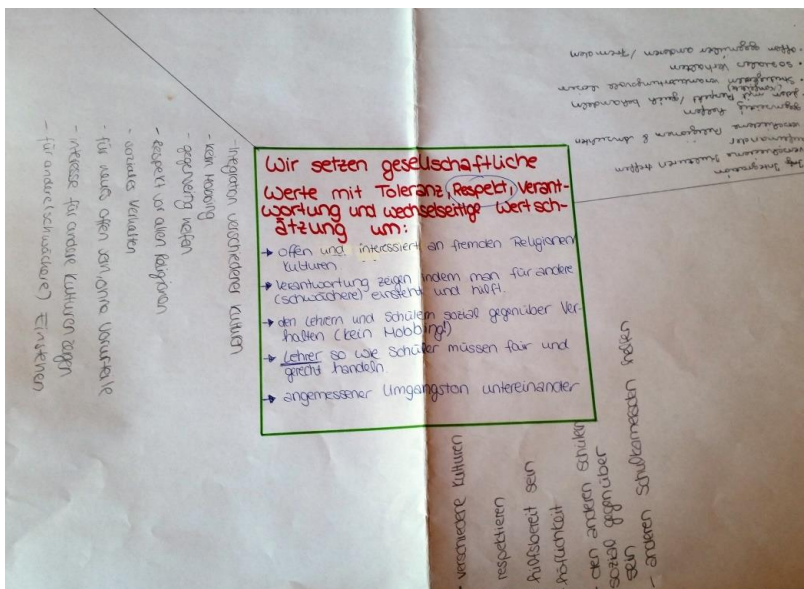 Wir setzen gesellschaftliche
Werte mit Toleranz, Respekt, Verant-
wortung und wechselseitige Wertsch-
ätzung um:
→ offen und interessiert an fremden Religionen
Kulturen.
→ Verantwortung zeigen indem man für andere
(schwächere) einsteht und hilft.
→ den Lehrern und Schülern sozial gegenüber Ver-
halten (kein Mobbing!)
→ Lehrer so wie Schüler müssen fair und
gerecht handeln
→ angemessener Umgangston untereinander
- Integration verschiedener Kulturen
- kein Mobbing
- gegenseitig helfen
- Respekt vor allen Religionen
- soziales Verhalten
- für neues offen sein ohne Vorurteile
- interesse für andere Kulturen zeigen
- für andere (schwächere) Einstehen
- verschiedene Kulturen
respektieren
hilfsbereit sein
höflichkeit
- den anderen Schülern
sozial gegenüber
sein
- anderen Schulkameraden helfen
verschiedene Religionen & Ansichten
gegenseitig helfen
jeden mit Respekt / behandeln
• soziales Verhalten
• offen gegenüber anderem / Fremdem